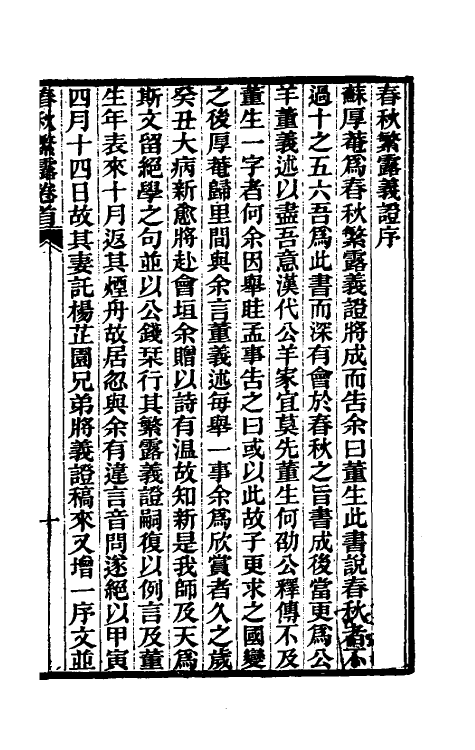 春秋繁露義證序
蘇厚菴爲春秋繁露義證將成而告余曰董生此書說春秋者不
過十之五六吾爲此書而深有會於春秋之旨書成後當更爲公
羊董義述以盡吾意漢代公羊家宜莫先董生何劭公釋傳不及
董生一字者何余因舉眭孟事告之曰或以此故子更求之國變
之後厚菴歸里間與余言董義述每舉一事余爲欣賞者久之歲
癸丑大病新愈將赴會垣余贈以詩有温故知新是我師及天爲
斯文留絕學之句並以公錢栞行其繁露義證嗣復以例言及董
生年表來十月返其煙舟故居忽與余有違言音問遂絕以甲寅
四月十四日故其妻託楊芷園兄弟將義證稿來又增一序文並
春秋繁露卷首
十